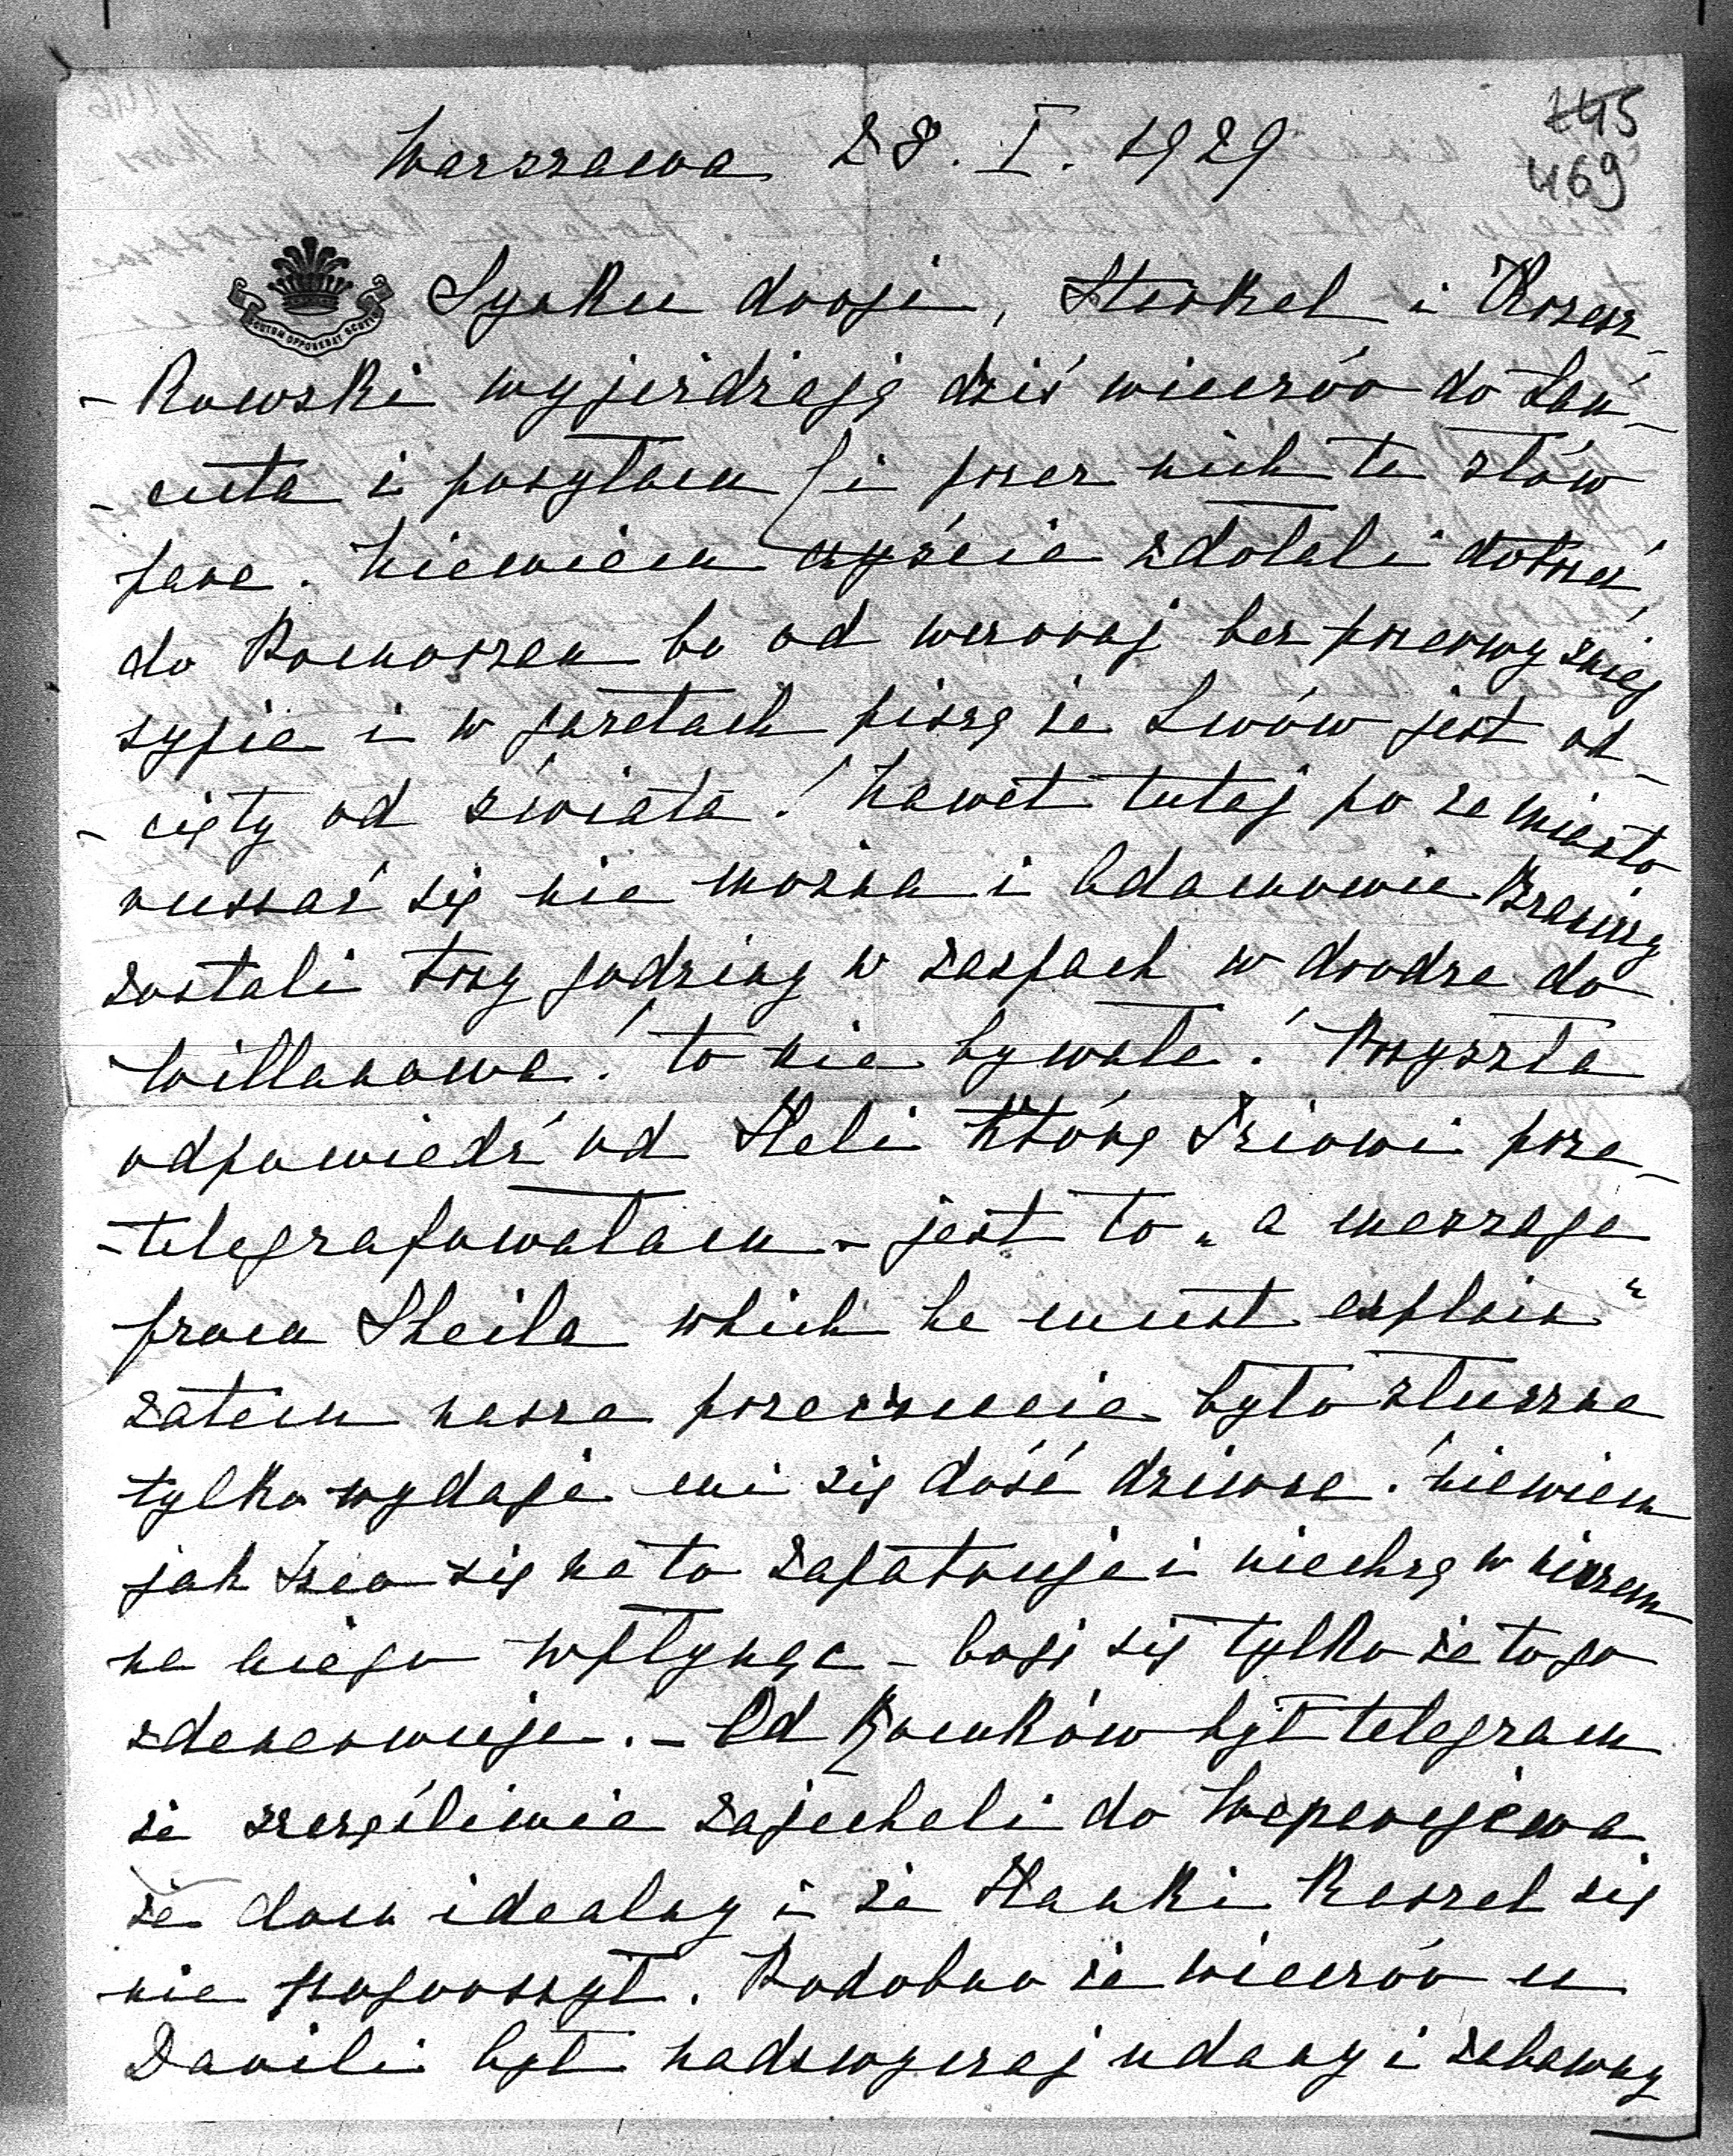 245
469
Warszawa 28. I. 1929
SCUTUM OPPONEBAT SCUTIS
Synku drogi, Stockel i
-kowski wyjeżdżają dziś wieczór do Łań-
-cuta i posyłam Ci przez nich te słów
parę. Niewiem czyście zdołali dotrzeć
do bo od wczoraj bez przerwy śnieg
sypie i w gazetach piszą że Lwów jest od-
-cięty od świata! Nawet tutaj po za miasto
ruszać się nie można i Adamowie Braniccy
zostali trzy godziny w zaspach w drodze do
Willanowa! to nie bywałe! Przyszła
odpowiedź od Heli którą prze-
-telegrafowałam - jest to „a message
from Sheila which he must explain"
zatem nasze przeczucie było słuszne
tylko wydaje mi się dość dziwne. Niewiem
jak się na to zapatruje i niechcę w niczem
na niego wpłynąć - boję się tylko że to go
zdenerwuje. - Od był telegram
że szczęśliwie zajechali do
że dom idealny i że Hanki kaszel się
nie pogorszył. Podobno że wieczór u
Davili był nadzwyczaj udany i zabawny